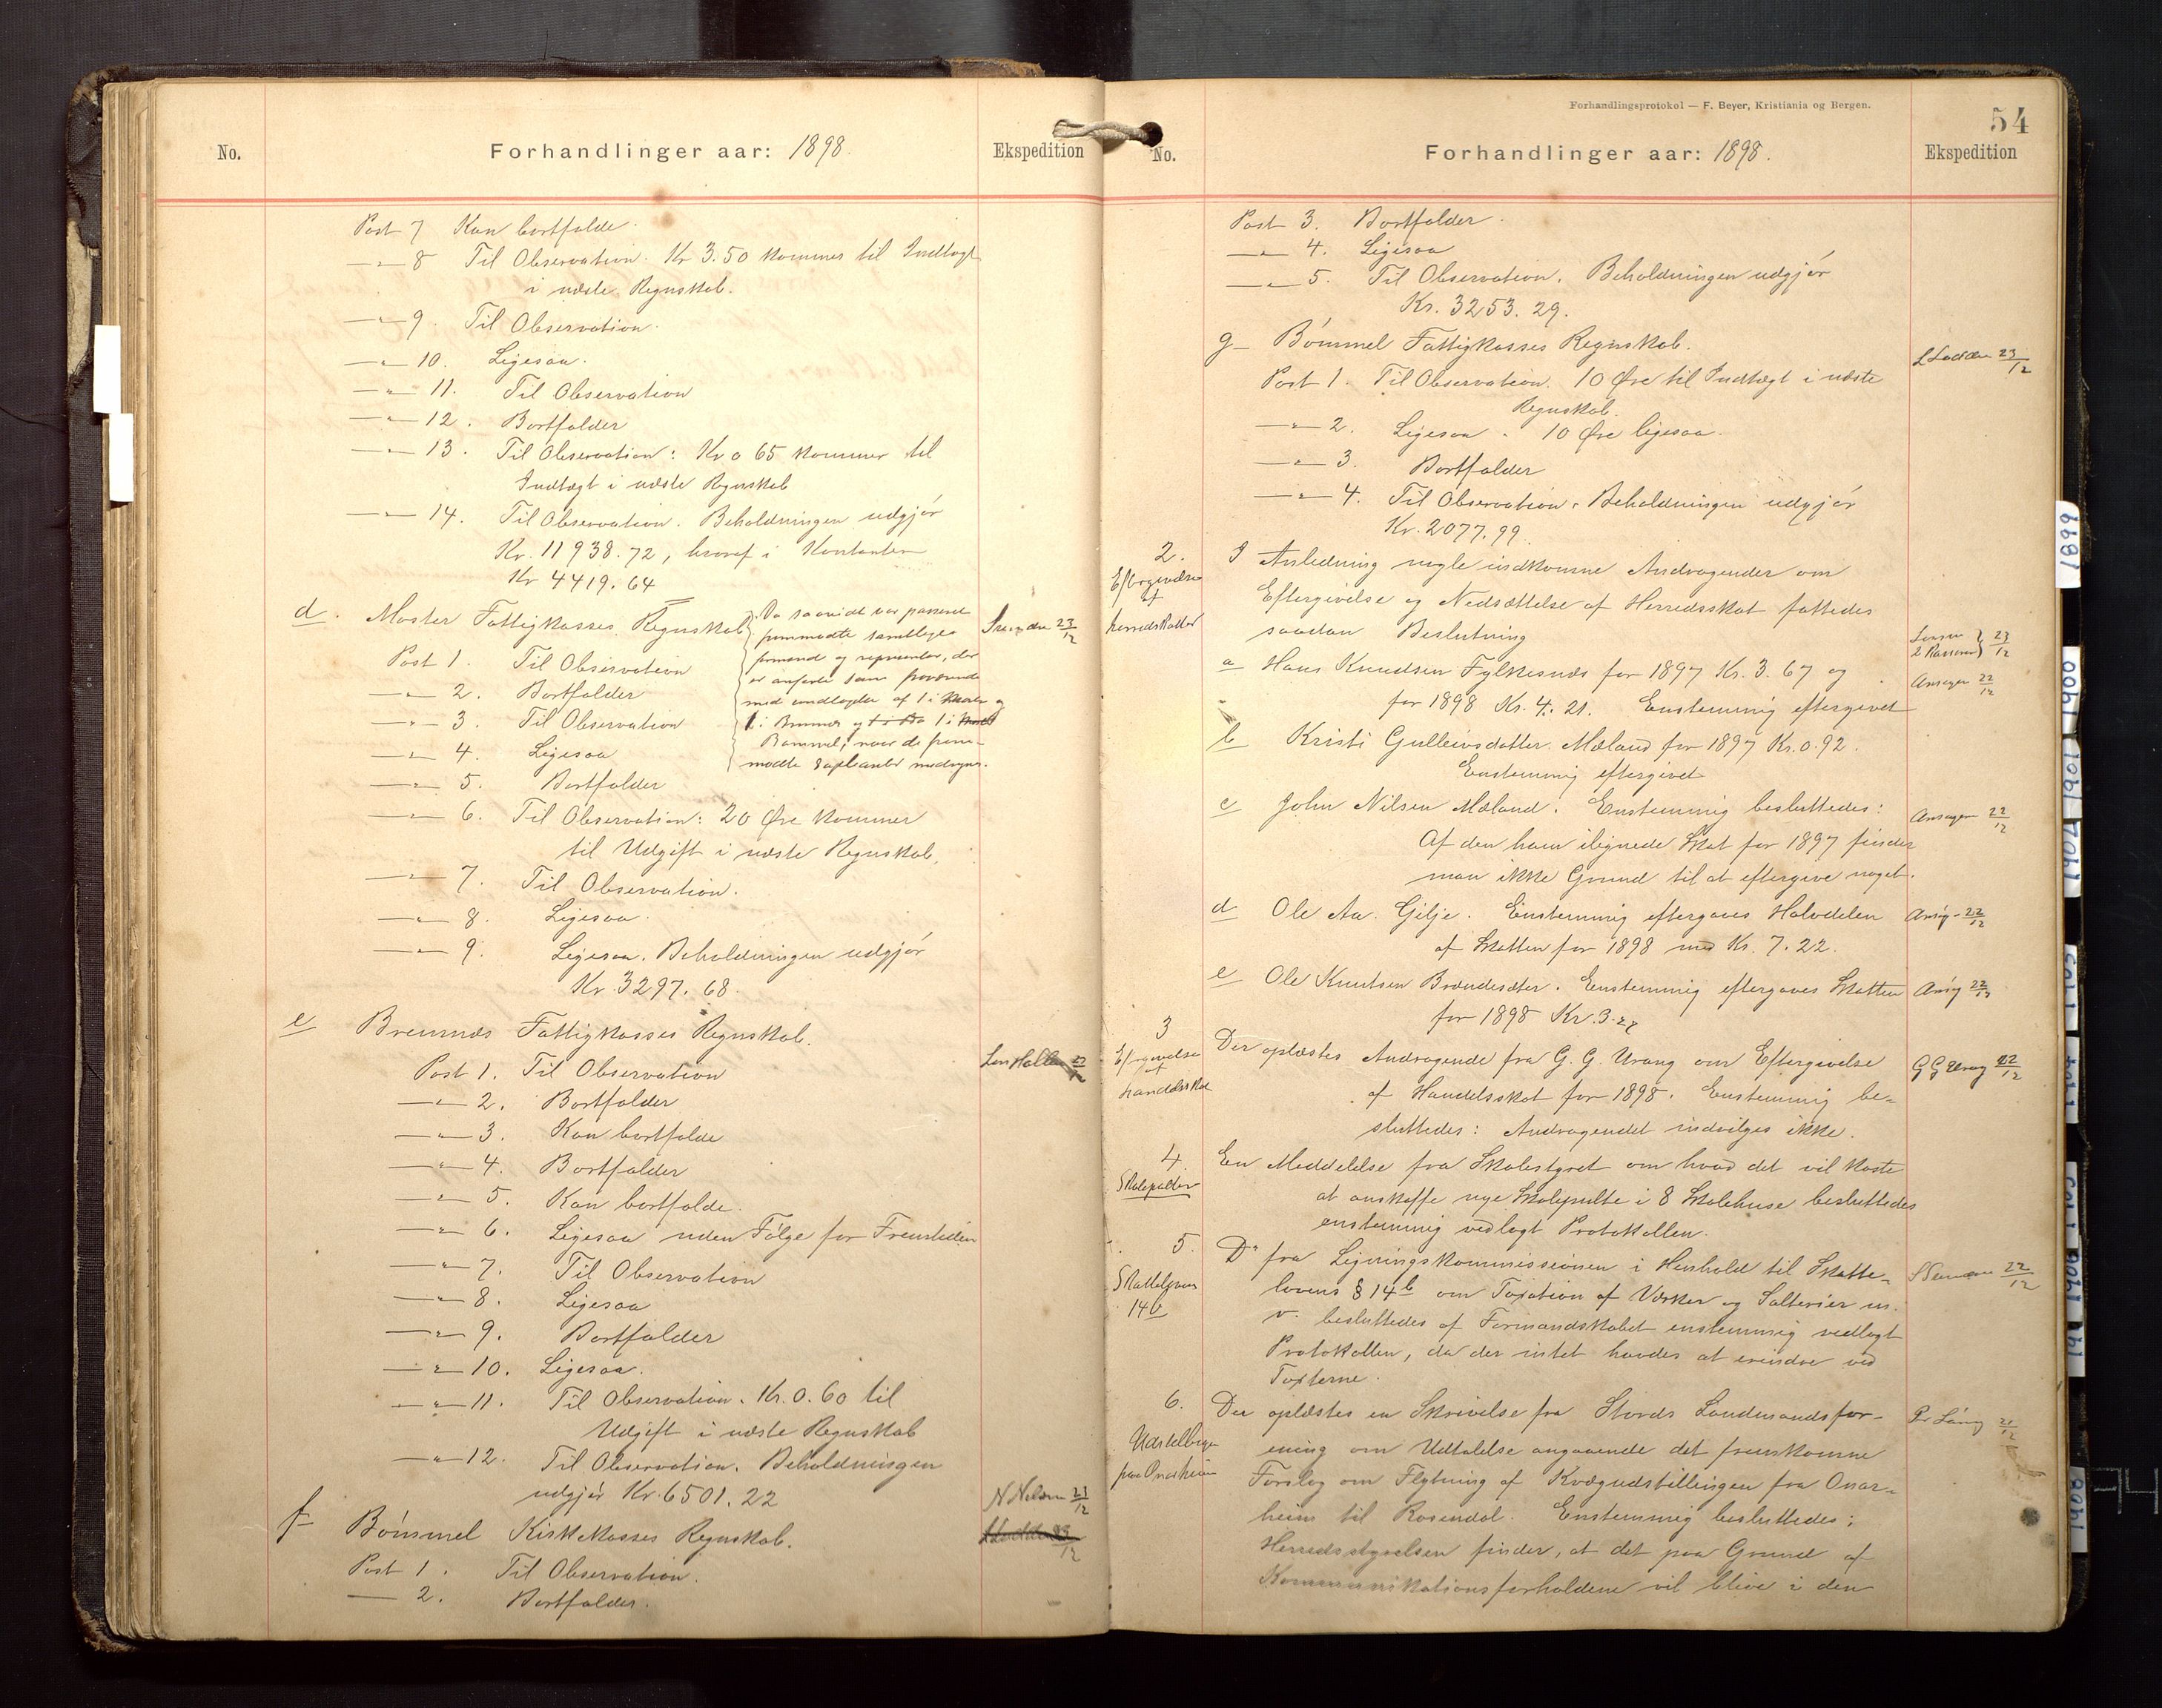 No.
Forhandlinger aar: 1898.
Ekspedition
Post 7 Kan bortfalde.
—"— 8 Til Observation. Kr 3.50 kommes til Indtægt
i næste Regnskab.
—"— 9. Til Observation.
—"— 10. Ligesaa.
—"— 11. Til Observation
—"— 12. Bortfalder
—"— 13. Til Observation: Kr 0 65 kommer til
Indtægt i næste Regnskab
—"— 14. Til Observation. Beholdningen udgjør
Kr. 11938.72, hvoraf i Kontanter
Kr 4419.64
d. Moster Fattigkasses Regnskab
Da saavidt var passeret
fremmødte samtlige
formænd og repræsenter, der
er anførte som fraværende
med undtagelse af 1 i Moster og
1 i Bremnes og 1 i
Bømmel, naar de frem-
mødte suplanter medregnes.
23/12
Post 1. Til Observation
—"— 2. Bortfalder
—"— 3. Til Observation
—"— 4. Ligesaa
—"— 5. Bortfalder
—"— 6. Til Observation: 20 Øre kommer
til Udgift i næste Regnskab.
—"— 7. Til Observation.
—"— 8. Ligesaa.
—"— 9. Ligesaa. Beholdningen udgjør
Kr. 3297.68
e Bremnæs Fattigkasses Regnskab.
Post 1. Til Observation
—"— 2. Bortfalder
—"— 3. Kan bortfalde
—"— 4. Bortfalder
—"— 5. Kan bortfalde.
—"— 6. Ligesaa uden Følge for Fremtiden
—"— 7. Til Observation
—"— 8. Ligesaa
—"— 9. Bortfalder
—"— 10. Ligesaa.
—"— 11. Til Observation. Kr. 0.60 til
Udgift i næste Regnskab
—"— 12. Til Observation. Beholdningen
udgjør Kr. 6501.22
N Nelsen 23/12
f Bømmel Kirkekasses Regnskab.
Post 1. Til Observation.
— 2. Bortfalder.
Forhandlingsprotokol — F. Beyer, Kristiania og Bergen.
54
No.
Forhandlinger aar: 1898.
Ekspedition
Post 3. Bortfalder.
—"— 4. Ligesaa
—"— 5. Til Observation. Beholdningen udgjør
Kr. 3253.29.
g Bømmel Fattigkasses Regnskab.
23/12
Post 1. Til Observation. 10 Øre til Indtægt i næste
Regnskab.
—"— 2. Ligesaa. 10 Øre ligesaa.
—"— 3. Bortfalder
—"— 4. Til Observation. Beholdningen udgjør
Kr. 2077.99.
2.
Eftergivelse
af
herredskatter
I Anledning nogle indkomne Andragender om
Eftergivelse og Nedsættelse af Herredsskat fattedes
saadan Beslutning
23/12
a Hans Knudsen Fylkesnæs for 1897 Kr. 3.67 og
for 1898 Kr. 4.21. Enstemmig eftergivet
Ansøger 22/12
b Kristi Gulleivsdatter Mæland for 1897 Kr. 0.92.
Enstemmig eftergivet
c John Nilsen Mæland. Enstemmig besluttedes:
Ansøger 22/12
Af den ham ilignede Skat for 1897 finder
man ikke Grund til at eftergive noget.
d Ole Aa. Gilje. Enstemmig eftergaves Halvdelen
Ansøg. 22/12
af Skatten for 1898 med Kr. 7.22.
e Ole Knutsen Brændesæter. Enstemmig eftergaves Skatten
Ansøg 22/12
for 1898 Kr. 3.27
3
Eftergivelse
af
handelsskat
Der oplæstes Andragende fra G. G. Urang om Eftergivelse
af Handelsskat for 1898. Enstemmig be-
sluttedes: Andragendet indvilges ikke.
G G Urang 22/12
4.
Skolepulter
En Meddelelse fra Skolestyret om hvad det vil koste
at anskaffe nye Skolepulte i 8 Skolehuse besluttedes
enstemmig vedlagt Protokollen.
5.
Skattelovens
14b
Do fra Ligningskommissionen i Henhold til Skatte-
lovens § 14b om Taxation af Værker og Salterier m.
v. besluttedes af Formandskabet enstemmig vedlagt
Protokollen, da der intet havdes at erindre ved
Taxterne.
22/12
6.
Der oplæstes en Skrivelse fra Stords Landmandsfor-
ening om Udtalelse angaaende det fremkomne
Forslag om Flytning af Kvægudstillingen fra Onar-
heim til Rosendal. Enstemmig besluttedes:
Herredsstyrelsen finder, at det paa Grund af
Kommunikationsforholdene vil blive i den
1899
1900
1901
1902
1903
1904
1905
1906
1907
1908